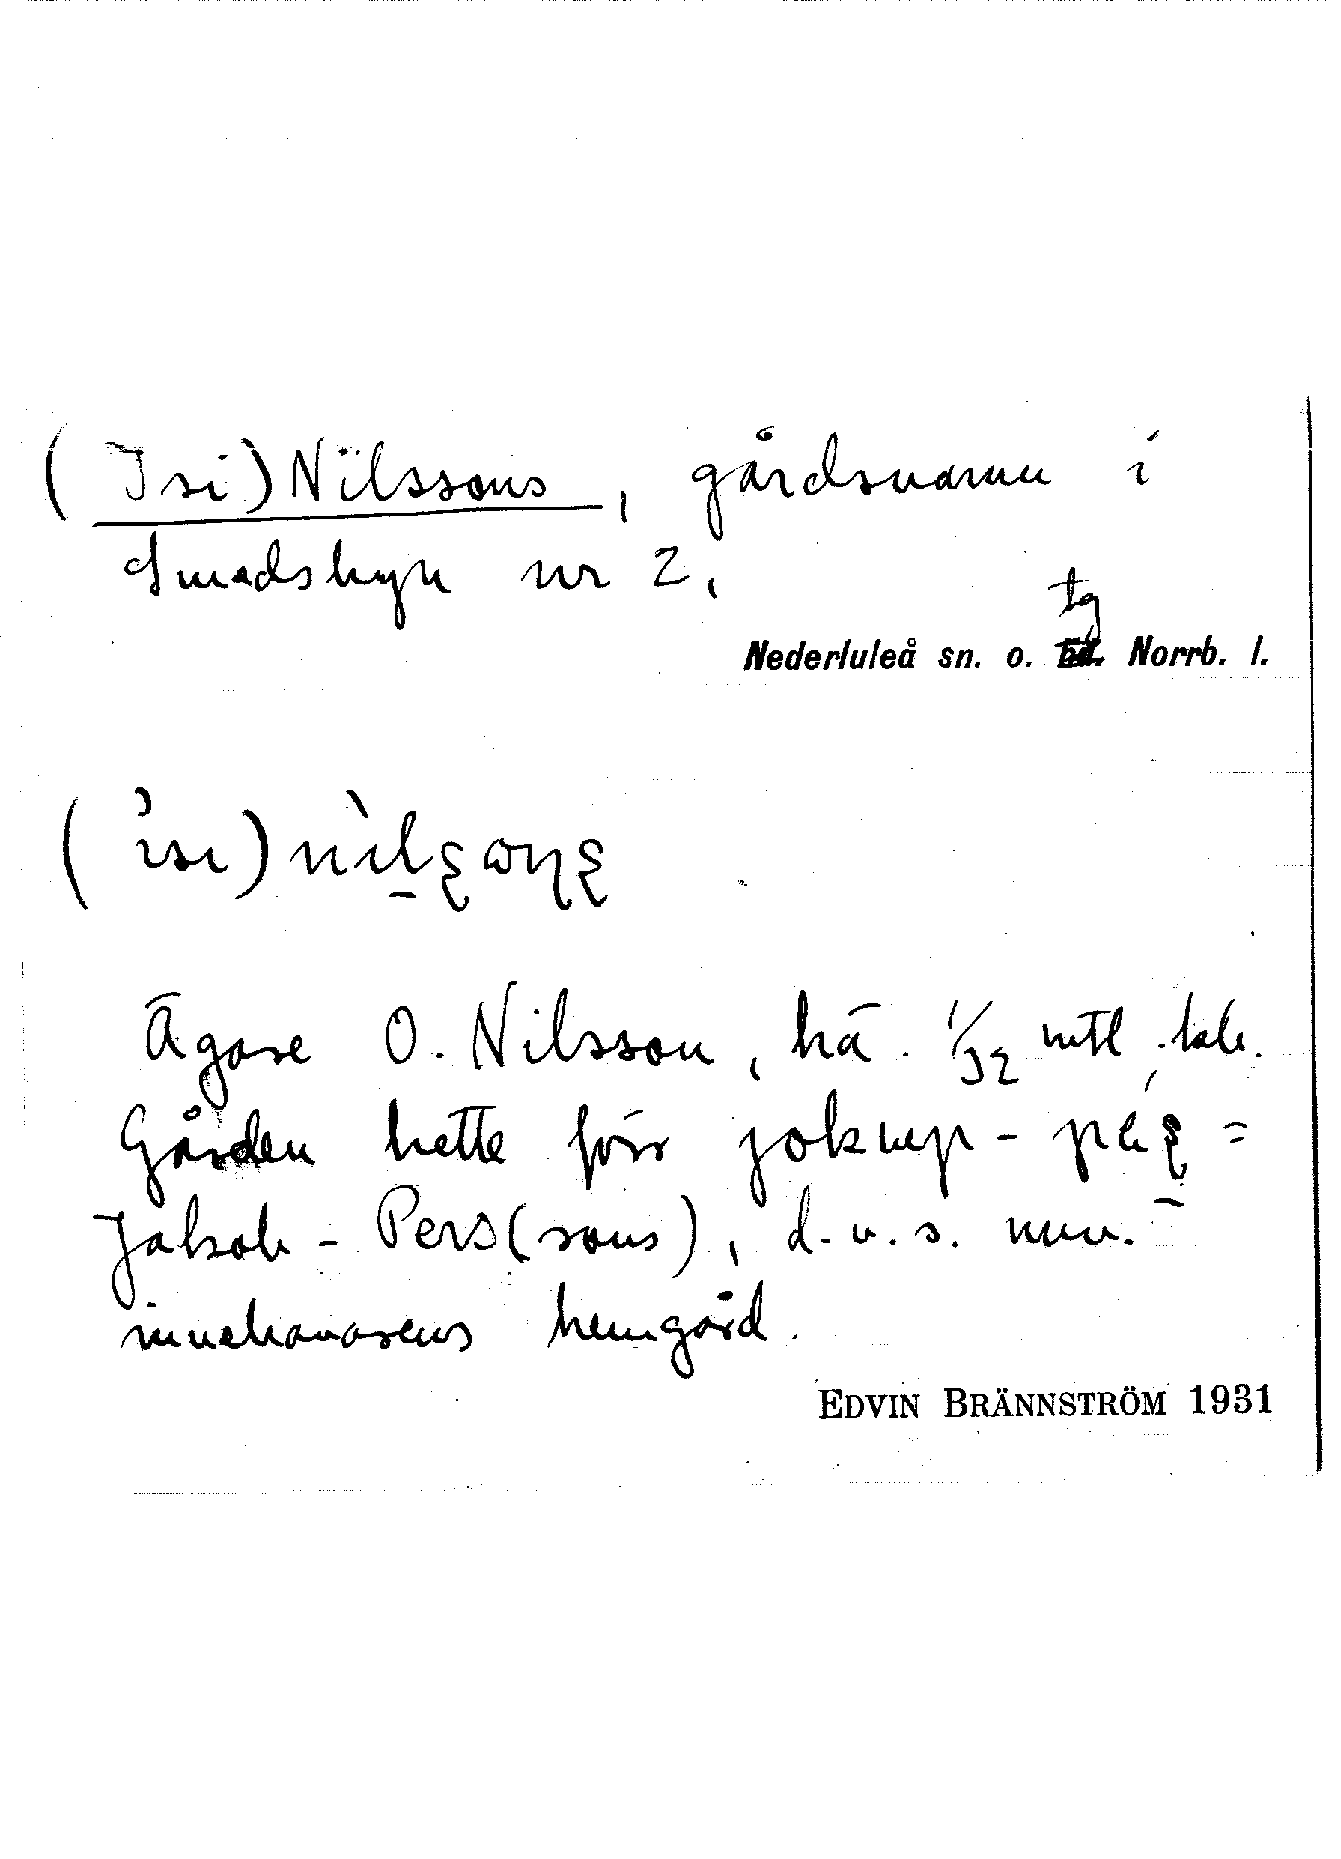 (Isi)Nilssons, gårdsnamn i
Smedsbyn nr 2,
tg
Nederluleå sn. o. Norrb. l.
(isi)
Ägare O. Nilsson, hä. 1/32 mtl
Gården hette förr jokup-
Jakob-Pers(sons), d.v.s. nuv.
innehavarens hemgård.
EDVIN BRÄNNSTRÖM 1931